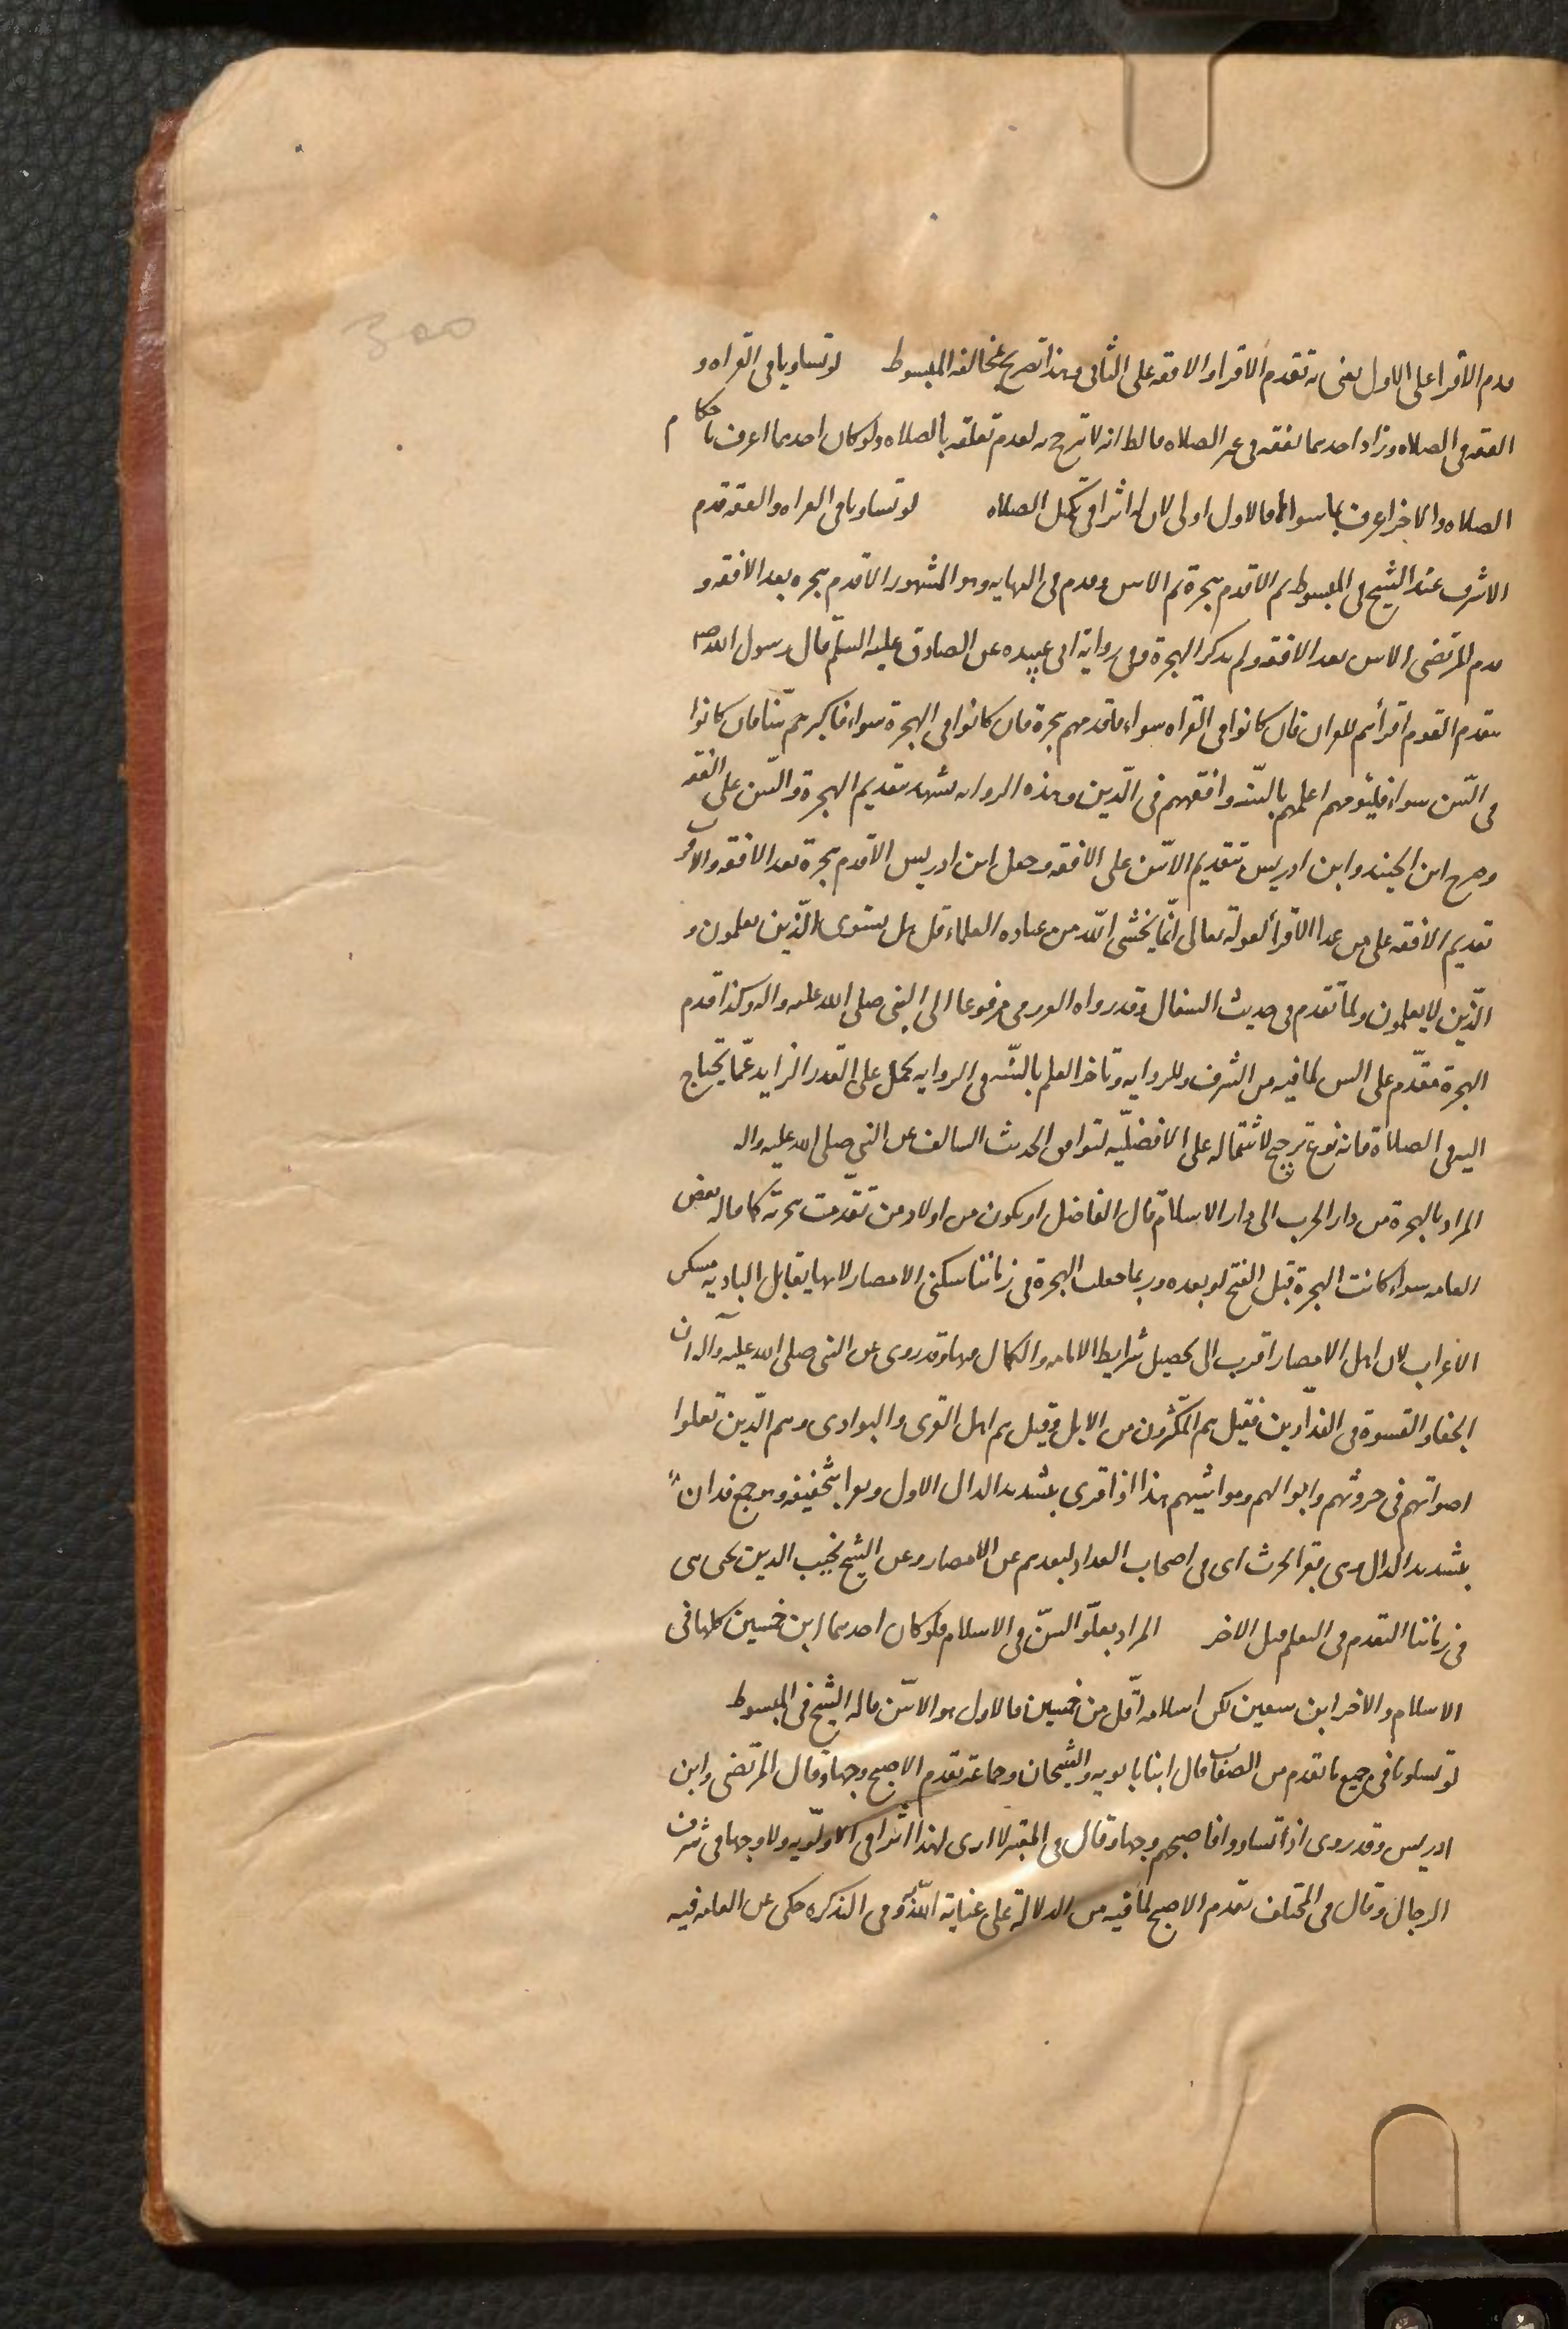 قدم الأقرا على الاول يعنى به تقدم الاقرا والافقه على الثانى وهذا تصريح بمخالفه المبسوط لو تساويا فى القراه و
الفقه فى الصلاه وزاد احدهما بفقه فى غير الصلاه فالظ انه لا ترجيح به لعدم تعلقه بالصلاه ولو كان احدهما اعرف باحكام
الصلاه والاخر اعرف بما سواها فالاول اولى لان له اثرا فى تكميل الصلاه لو تساويا فى القراه والفقه قدم
الاشرف عند الشيخ فى المبسوط ثم الاقدم هجرة ثم الاسن وقدم فى النهايه وهو المشهور الاقدم هجره بعد الافقه و
قدم المرتضى الاسن بعد الافقه ولم يذكر الهجرة وفى رواية ابى عبيده عن الصادق عليه السلم قال رسول الله ص
يتقدم القوم اقرأهم للقران فان كانوا فى القراه سواء فاقدمهم هجرة فان كانوا فى الهجرة سواء فاكبرهم سّنا فان كانوا
فى السّن سواء فليؤمهم اعلمهم بالسّنه وافقههم فى الدّين وهذه الروايه يشهد بتقديم الهجرة والسّن على الفقه
وصرح ابن الجنيد وابن ادريس بتقديم الاسّن على الافقه وجعل ابن ادريس الاقدم هجرة بعد الافقه والاقرب
تقديم الافقه على من عدا الاقرأ لقوله تعالى انّما يخشى اللّه من عباده العلماء قل هل يستوى الّذين يعلمون و
الّذين لا يعلمون ولمّا تقدم فى حديث السفال وقد رواه العزرمى مرفوعا الى النبى صلى الله عليه واله وكذا قدم
الهجرة مقدّم على السن لما فيه من الشرف وللروايه وتاخر العلم بالسّنه فى الروايه يحمل على القدر الزايد عمّا يحتاج
اليه فى الصلاة فانه نوع ترجيح لاشتماله على الافضليّه لتوافق الحديث السالف عن النبى صلى الله عليه واله
المراد بالهجرة من دار الحرب الى دار الاسلام قال الفاضل او يكون من اولاد من تقدّمت هجرته كما قاله بعض
العامه سواء كانت الهجرة قبل الفتح او بعده وربما جعلت الهجرة فى زماننا سكنى الامصار لانها يقابل الباديه مسكن
الاعراب لان اهل الامصار اقرب الى تحصيل شرايط الامامه والكمال فيها وقد روى عن النبى صلى الله عليه وآله ان
الجفاء والقسوة فى الفدّادين فقيل هم المكثّرون من الابل وقيل هم اهل القرى والبوادى وهم الّذين تعلوا
اصواتهم فى حروثهم واموالهم ومواشيهم هذا اذا قرى بتشديد الدال الاول ويروا بتخفيفه وهو جمع فدان
بتشديد الدال وهى بقر الحرث اى فى اصحاب الفداد لبعدهم عن الامصار وعن الشيخ نجيب الدين يحى هى
فى زماننا التقدم فى التعلم قبل الاخر المراد بعلّو السنّ فى الاسلام فلو كان احدهما ابن خمسين كلها فى
الاسلام والاخر ابن سبعين لكن اسلامه اقل من خمسين فالاول هو الاسّن قاله الشيخ فى المبسوط
لو تساويا فى جميع ما تقدم من الصفات قال ابنا بابويه والشيخان وجماعة تقدم الاصبح وجها وقال المرتضى وابن
ادريس وقد روى اذا تساووا فاصبحهم وجها وقال فى المعتبر لا ارى لهذا اثرا فى الاولّويه ولا وجها فى شرف
الرجال وقال فى المختلف تقدم الاصبح لما فيه من الدلالة على عناية اللّه به وفى التذكره حكى عن العامه فيه
300